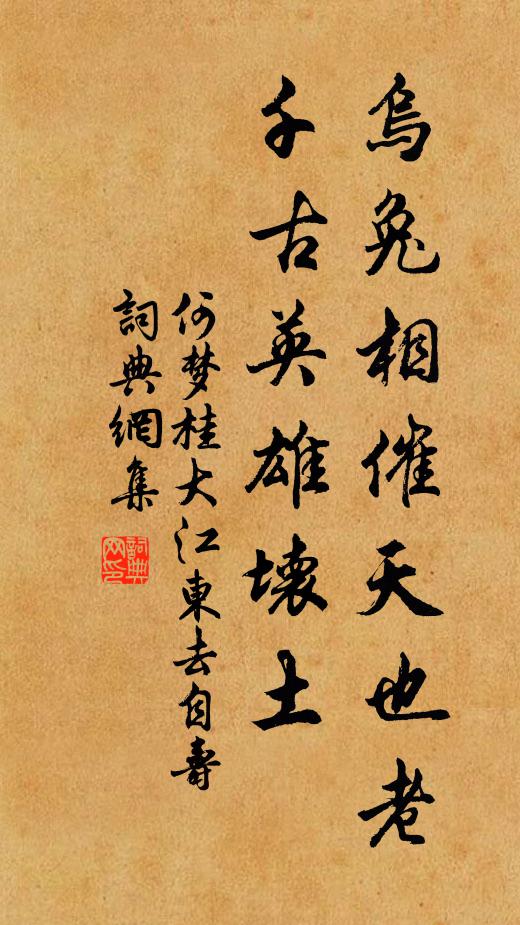 烏兔相催天也老
千古英雄壞土
何梦桂大江東去自壽
詞典網集
詞典
网印